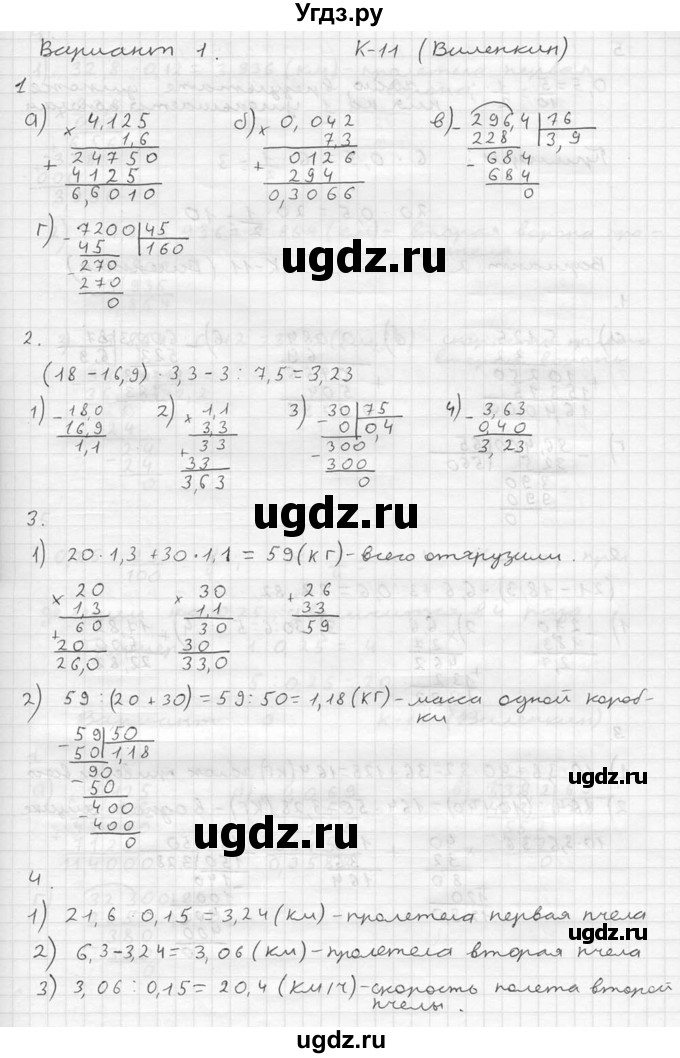 Угдз.ру
Вариант 1. К-11 (Виленкин)
1
а) × 4,125 б) × 0,042 в) - 296,4 | 76
1,6 7,3 228 | 3,9
+ 24750 + 0126 - 684
4125 294 684
6,6010 0,3066 0
г) - 7200 | 45
45 | 160
- 270
270
0
ugdz.ru
2.
(18 - 16,9) · 3,3 - 3 : 7,5 = 3,23
1) - 18,0 2) × 1,1 3) - 30 | 75 4) - 3,63
16,9 3,3 0 | 0,4 0,40
1,1 + 33 - 300 3,23
33 300
3,63 0
ugdz.ru
3.
1) 20 · 1,3 + 30 · 1,1 = 59 (кг) - всего отгрузили.
× 20 × 30 + 26
1,3 1,1 33
+ 60 30 59
20 30
26,0 33,0
ugdz.ru
2) 59 : (20 + 30) = 59 : 50 = 1,18 (кг) - масса одной короб-
ки
- 59 | 50
50 | 1,18
- 90
- 50
- 400
- 400
0
ugdz.ru
4.
1) 21,6 · 0,15 = 3,24 (км) - пролетела первая пчела
2) 6,3 - 3,24 = 3,06 (км) - пролетела вторая пчела
3) 3,06 : 0,15 = 20,4 (км/ч) - скорость полета второй
пчелы.
ugdz.ru
ugdz.ru